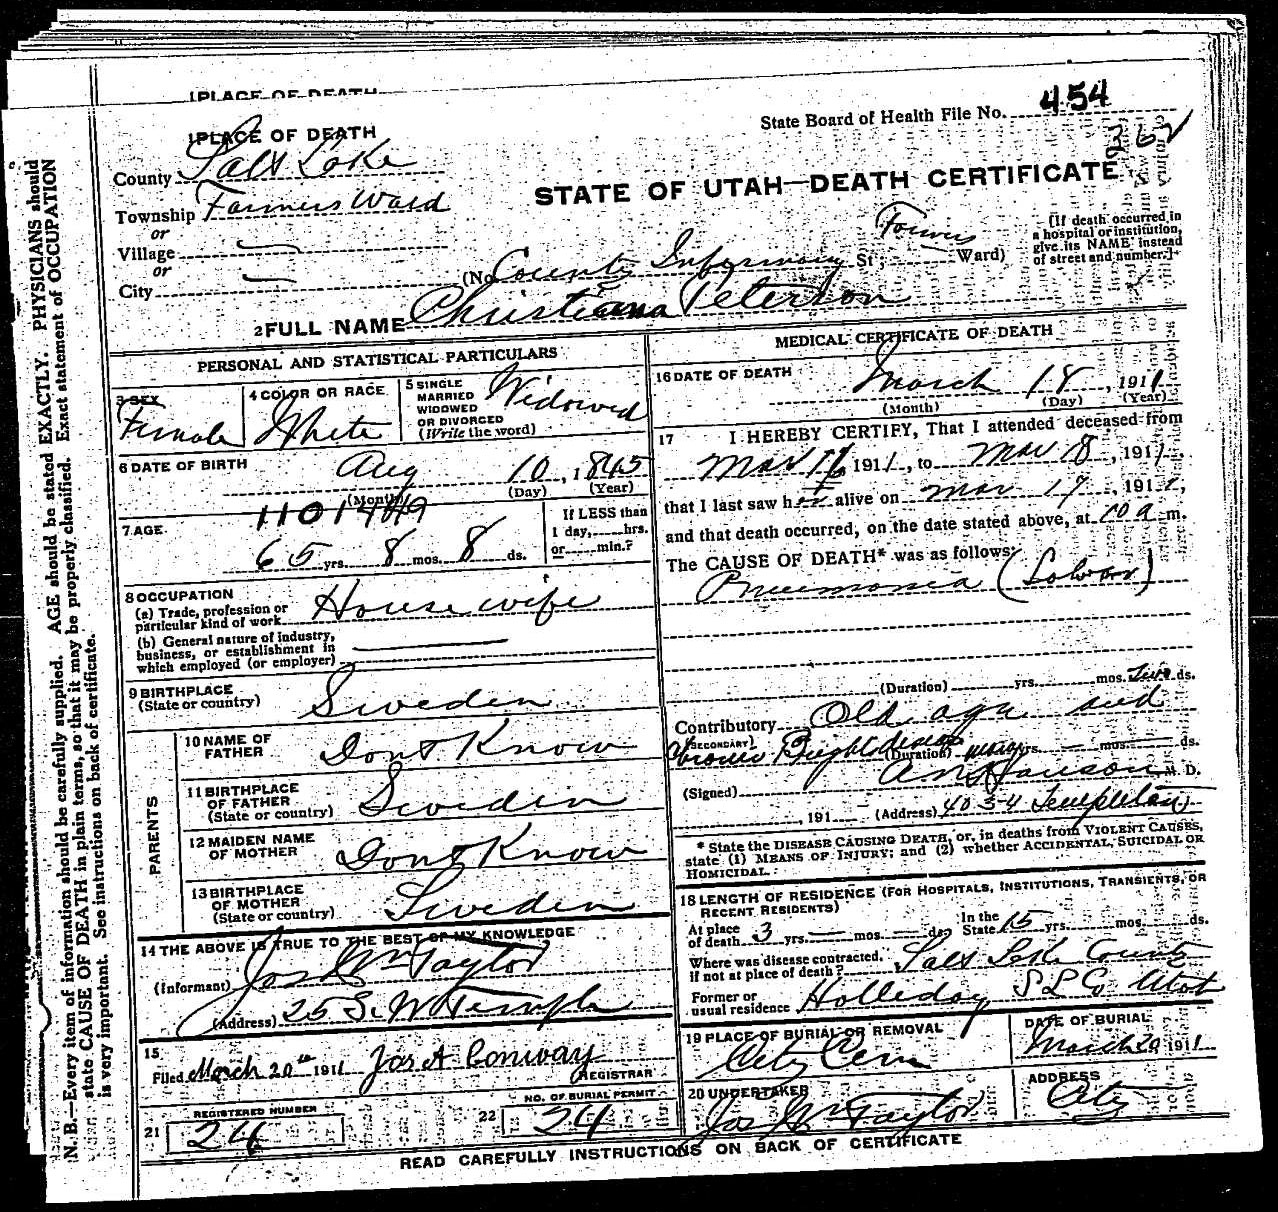 1 PLACE OF DEATH
1 PLACE OF DEATH
State Board of Health File No. 454
362
County Salt Lake
STATE OF UTAH—DEATH CERTIFICATE
Township Farmers Ward
or
Village
or
City
(No. County Infirmary St; Farmers Ward)
[If death occurred in a hospital or institution, give its NAME instead of street and number.]
2 FULL NAME Christiana Peterson
PERSONAL AND STATISTICAL PARTICULARS
3 SEX
Female
4 COLOR OR RACE
White
5 SINGLE
MARRIED
WIDOWED
OR DIVORCED
(Write the word)
Widowed
6 DATE OF BIRTH
Aug 10, 1845
(Month) (Day) (Year)
7 AGE
65 yrs. 8 mos. 8 ds.
If LESS than
1 day, hrs.
or min.?
8 OCCUPATION
(a) Trade, profession or
particular kind of work House wife
(b) General nature of industry,
business, or establishment in
which employed (or employer)
9 BIRTHPLACE
(State or country) Sweden
PARENTS
10 NAME OF
FATHER Dont Know
11 BIRTHPLACE
OF FATHER
(State or country) Sweden
12 MAIDEN NAME
OF MOTHER Dont Know
13 BIRTHPLACE
OF MOTHER
(State or country) Sweden
14 THE ABOVE IS TRUE TO THE BEST OF MY KNOWLEDGE
(Informant) Jos Wm Taylor
(Address) 25 S. W Temple
15
Filed March 20th 1911 Jas A Conway
REGISTRAR
REGISTERED NUMBER
21 24
NO. OF BURIAL PERMIT
22 24
MEDICAL CERTIFICATE OF DEATH
16 DATE OF DEATH
March 18, 1911
(Month) (Day) (Year)
17 I HEREBY CERTIFY, That I attended deceased from
Mar 16 1911, to Mar 18, 1911.
that I last saw her alive on Mar 17, 1911,
and that death occurred, on the date stated above, at 10 a m.
The CAUSE OF DEATH* was as follows:
Pneumonia (Lobar)
(Duration) yrs. mos. Two ds.
Contributory Old age and
(SECONDARY)
Chronic Brights disease (Duration) many yrs. — mos. — ds.
(Signed) A N Hanson M. D.
, 191 (Address) 403-4 Templeton
* State the DISEASE CAUSING DEATH, or, in deaths from VIOLENT CAUSES,
state (1) MEANS OF INJURY; and (2) whether ACCIDENTAL, SUICIDAL OR
HOMICIDAL.
18 LENGTH OF RESIDENCE (FOR HOSPITALS, INSTITUTIONS, TRANSIENTS, OR
RECENT RESIDENTS)
At place
of death 3 yrs. — mos. — ds.
In the
State 15 yrs. mos. ds.
Where was disease contracted,
if not at place of death? Salt Lake County
Former or
usual residence Holliday S L Co Utah
19 PLACE OF BURIAL OR REMOVAL
City Cem
DATE OF BURIAL
March 20 1911
20 UNDERTAKER
Jos Wm Taylor
ADDRESS
City
READ CAREFULLY INSTRUCTIONS ON BACK OF CERTIFICATE
N. B.—Every item of information should be carefully supplied. AGE should be stated EXACTLY. PHYSICIANS should
state CAUSE OF DEATH in plain terms, so that it may be properly classified. Exact statement of OCCUPATION
is very important. See instructions on back of certificate.